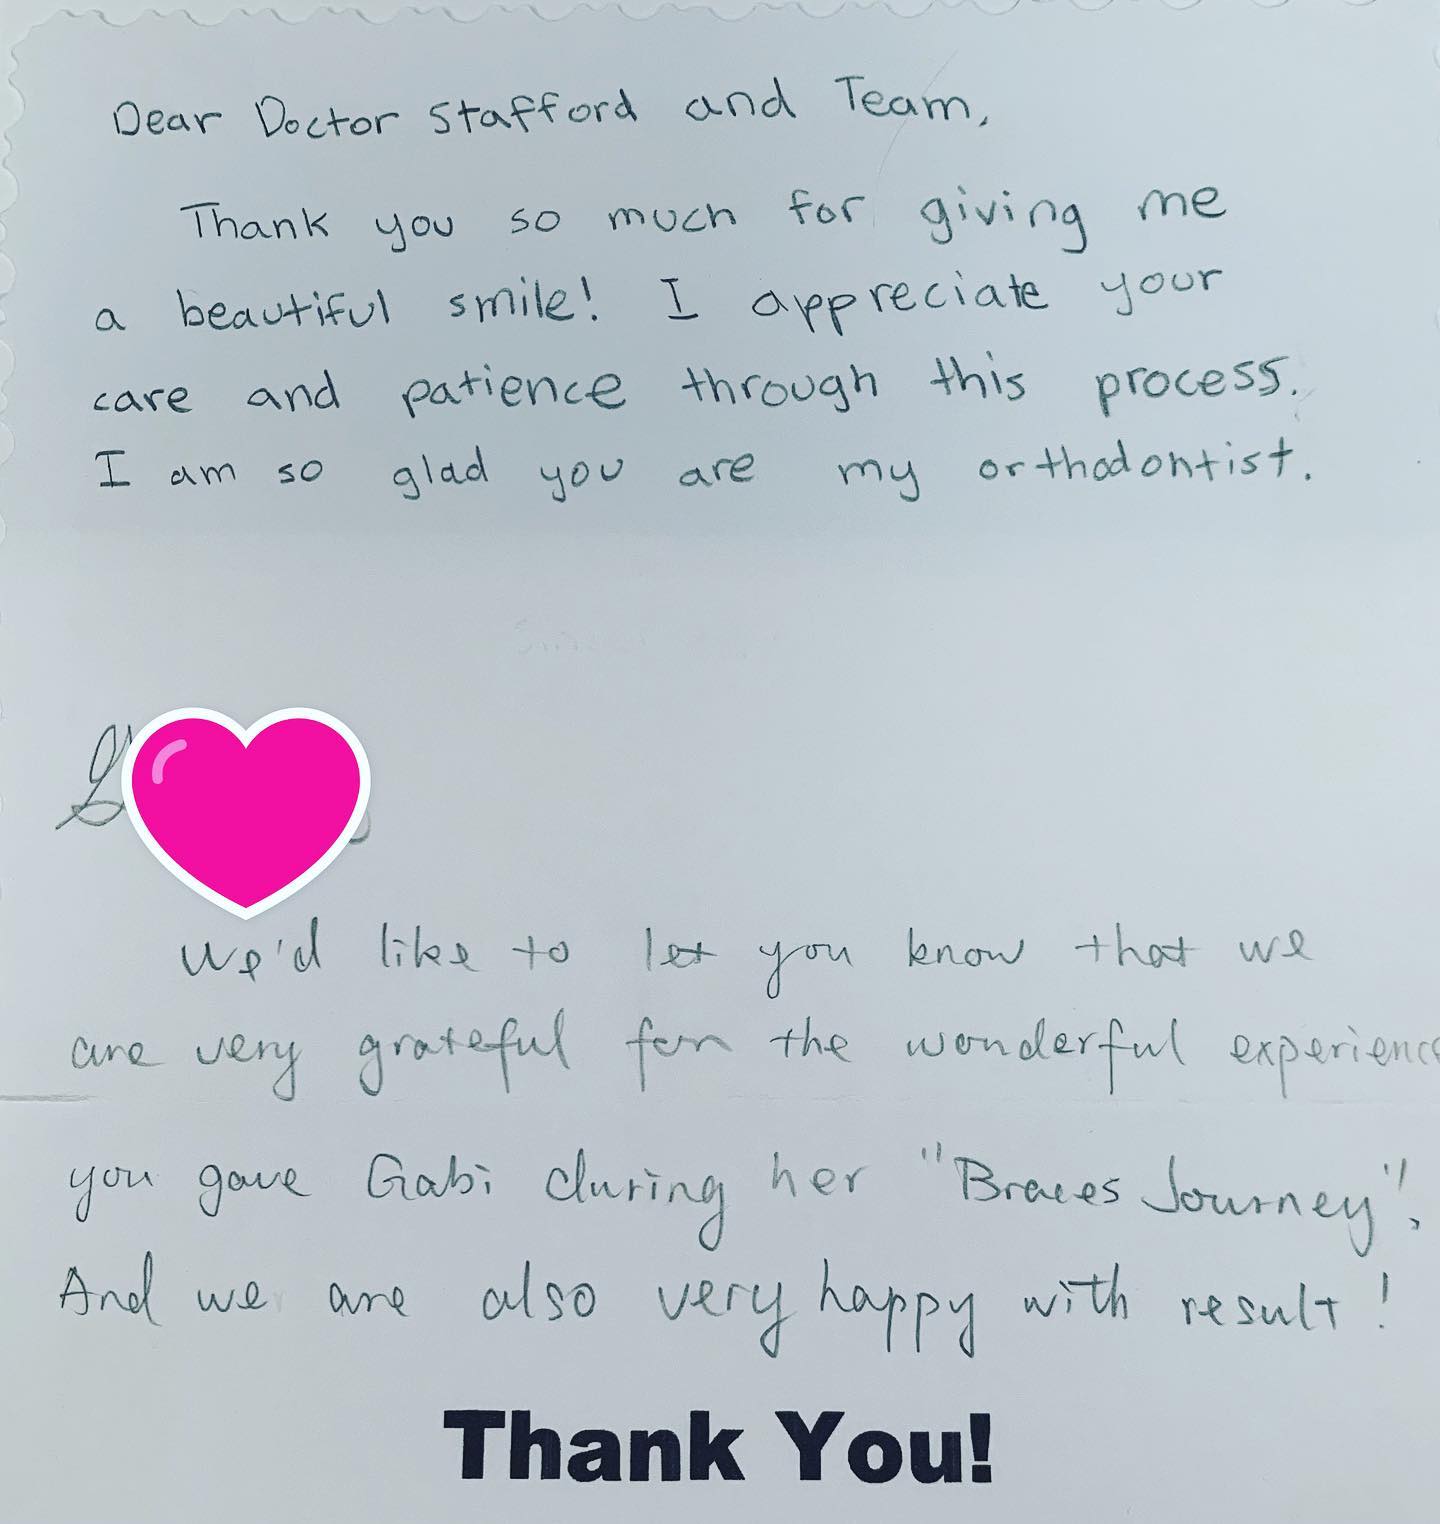 Dear Doctor Stafford and Team,
Thank you so much for giving me
a beautiful smile! I appreciate your
care and patience through this process.
I am so glad you are my orthodontist.
We'd like to let you know that we
are very grateful for the wonderful experience
you gave Gabi during her "Braces Journey".
And we are also very happy with result!
Thank You!